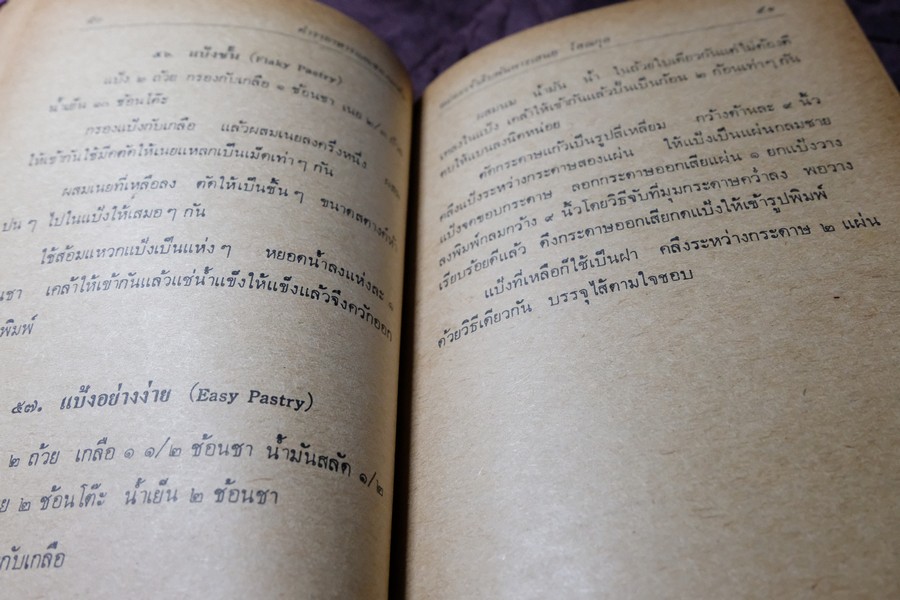 ๕๐
ตำราอาหาร
๕๖. แป้งชั้น (Flaky Pastry)
แป้ง ๒ ถ้วย กรองกับเกลือ ๑ ช้อนชา เนย ๒/๓
น้ำเย็น ช้อนโต๊ะ
กรองแป้งกับเกลือ แล้วผสมเนยลงครึ่งหนึ่ง
ให้เข้ากันใช้มีดตัดให้เนยแหลกเป็นเม็ดเท่าๆ กัน
ผสมเนยที่เหลือลง ตัดให้เป็นชิ้นๆ ขนาด
ปนๆ ไปในแป้งให้เสมอๆ กัน
ใช้ส้อมแหวกแป้งเป็นแห่งๆ หยอดน้ำลงแห่งละ ๑
นชา เคล้าให้เข้ากันแล้วแช่น้ำแข็งให้แข็งแล้วจึงควักออก
พิมพ์
๕๗. แป้งอย่างง่าย (Easy Pastry)
๒ ถ้วย เกลือ ๑ ๑/๒ ช้อนชา น้ำมันสลัด ๑/๒
ย ๒ ช้อนโต๊ะ น้ำเย็น ๒ ช้อนชา
กับเกลือ
๕๑
โสณกุล
ผสมนม น้ำมัน น้ำ ในถ้วยใบเดียวกันแต่ไม่ต้องตี
เทลงในแป้ง เคล้าให้เข้ากันแล้วปั้นเป็นก้อน ๒ ก้อนเท่าๆ กัน
ตบให้แบนลงนิดหน่อย
ตัดกระดาษแก้วเป็นรูปสี่เหลี่ยม กว้างด้านละ ๙ นิ้ว
คลึงแป้งระหว่างกระดาษสองแผ่น ให้แป้งเป็นแผ่นกลมชาย
แป้งจดขอบกระดาษ ลอกกระดาษออกเสียแผ่น ๑ ยกแป้งวาง
ลงพิมพ์กลมกว้าง ๙ นิ้วโดยวิธีจับที่มุมกระดาษคว่ำลง พอวาง
เรียบร้อยดีแล้ว ดึงกระดาษออกเสียกดแป้งให้เข้ารูปพิมพ์
แป้งที่เหลือก็ใช้เป็นฝา คลึงระหว่างกระดาษ ๒ แผ่น
ด้วยวิธีเดียวกัน บรรจุไส้ตามใจชอบ